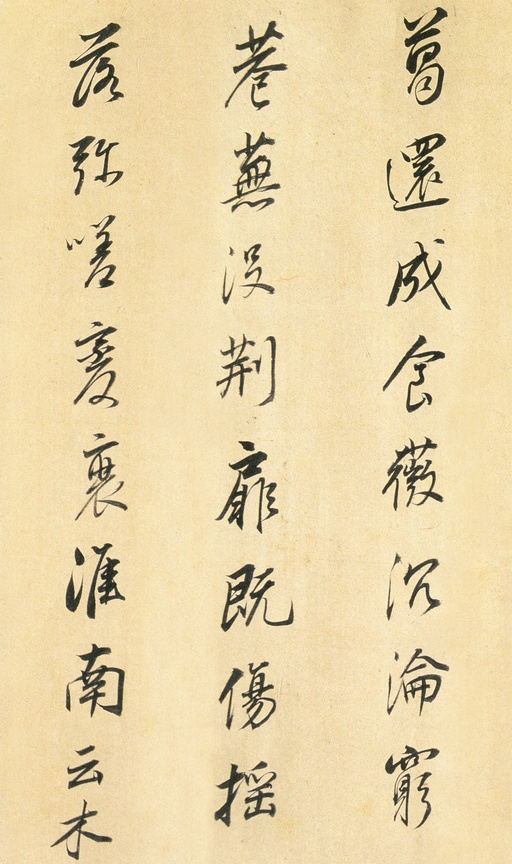 葛還成食薇沉淪窮
巷蕪没荊扉既傷搖
落弥嗟變衰淮南云木